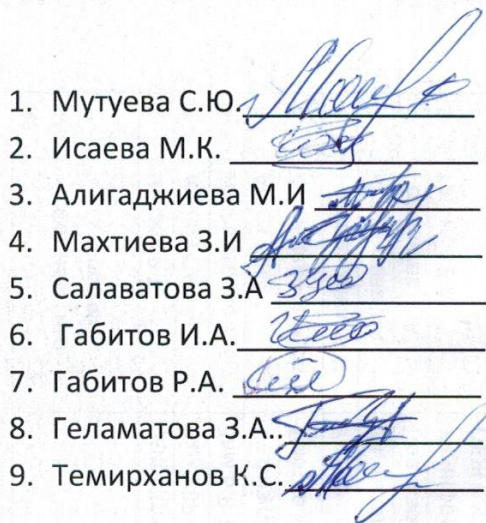 1. Мутуева С.Ю.
2. Исаева М.К.
3. Алигаджиева М.И
4. Махтиева З.И
5. Салаватова З.А
6. Габитов И.А.
7. Габитов Р.А.
8. Геламатова З.А..
9. Темирханов К.С.